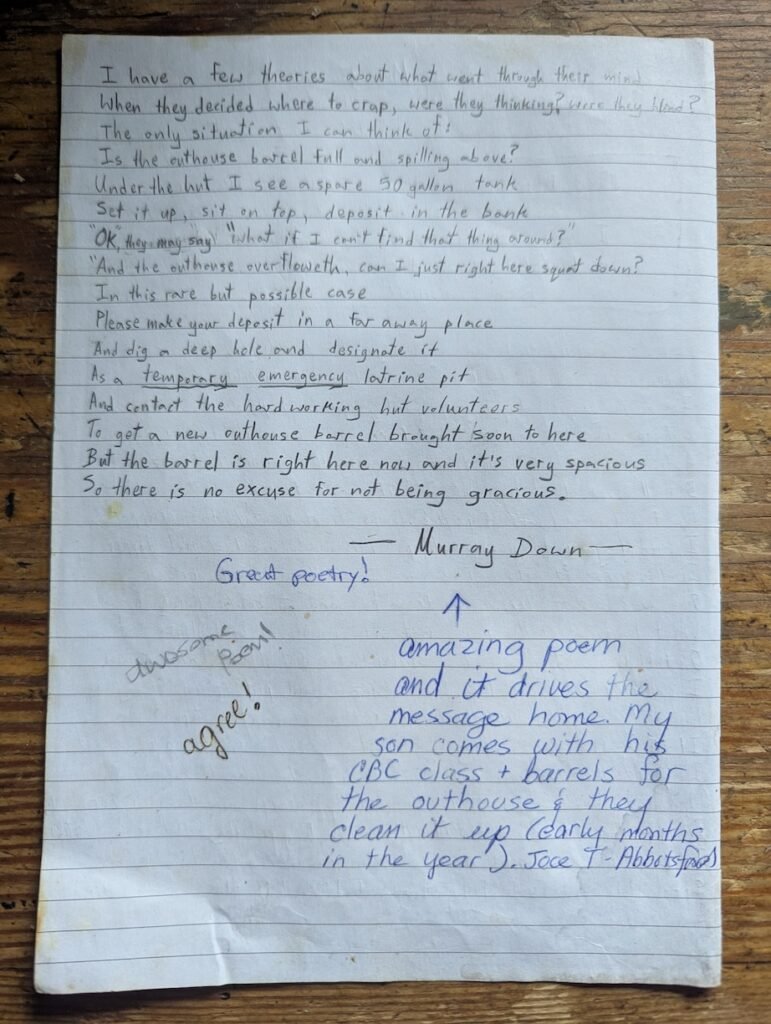 I have a few theories about what went through their mind
When they decided where to crap, were they thinking? were they blind?
The only situation I can think of:
Is the outhouse barrel full and spilling above?
Under the hut I see a spare 50 gallon tank
Set it up, sit on top, deposit in the bank
"OK," they may say "what if I can't find that thing around?"
"And the outhouse overfloweth, can I just right here squat down?
In this rare but possible case
Please make your deposit in a far away place
And dig a deep hole and designate it
As a temporary emergency latrine pit
And contact the hard working hut volunteers
To get a new outhouse barrel brought soon to here
But the barrel is right here now and it's very spacious
So there is no excuse for not being gracious.
— Murray Down —
Great poetry!
awesome
poem!
agree!
↑
amazing poem
and it drives the
message home. My
son comes with his
CBC class + barrels for
the outhouse & they
clean it up (early months
in the year). Joce T - Abbotsford